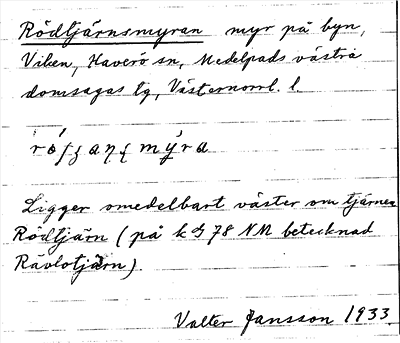 Rödtjärnsmyran myr på byn,
Viken, Haverö sn, Medelpads västra
domsagas tg, Västernorrl. l.
Ligger omedelbart väster om tjärnen
Rödtjärn (på k G 78 NM betecknad
Rävlotjärn).
Valter Jansson 1933.